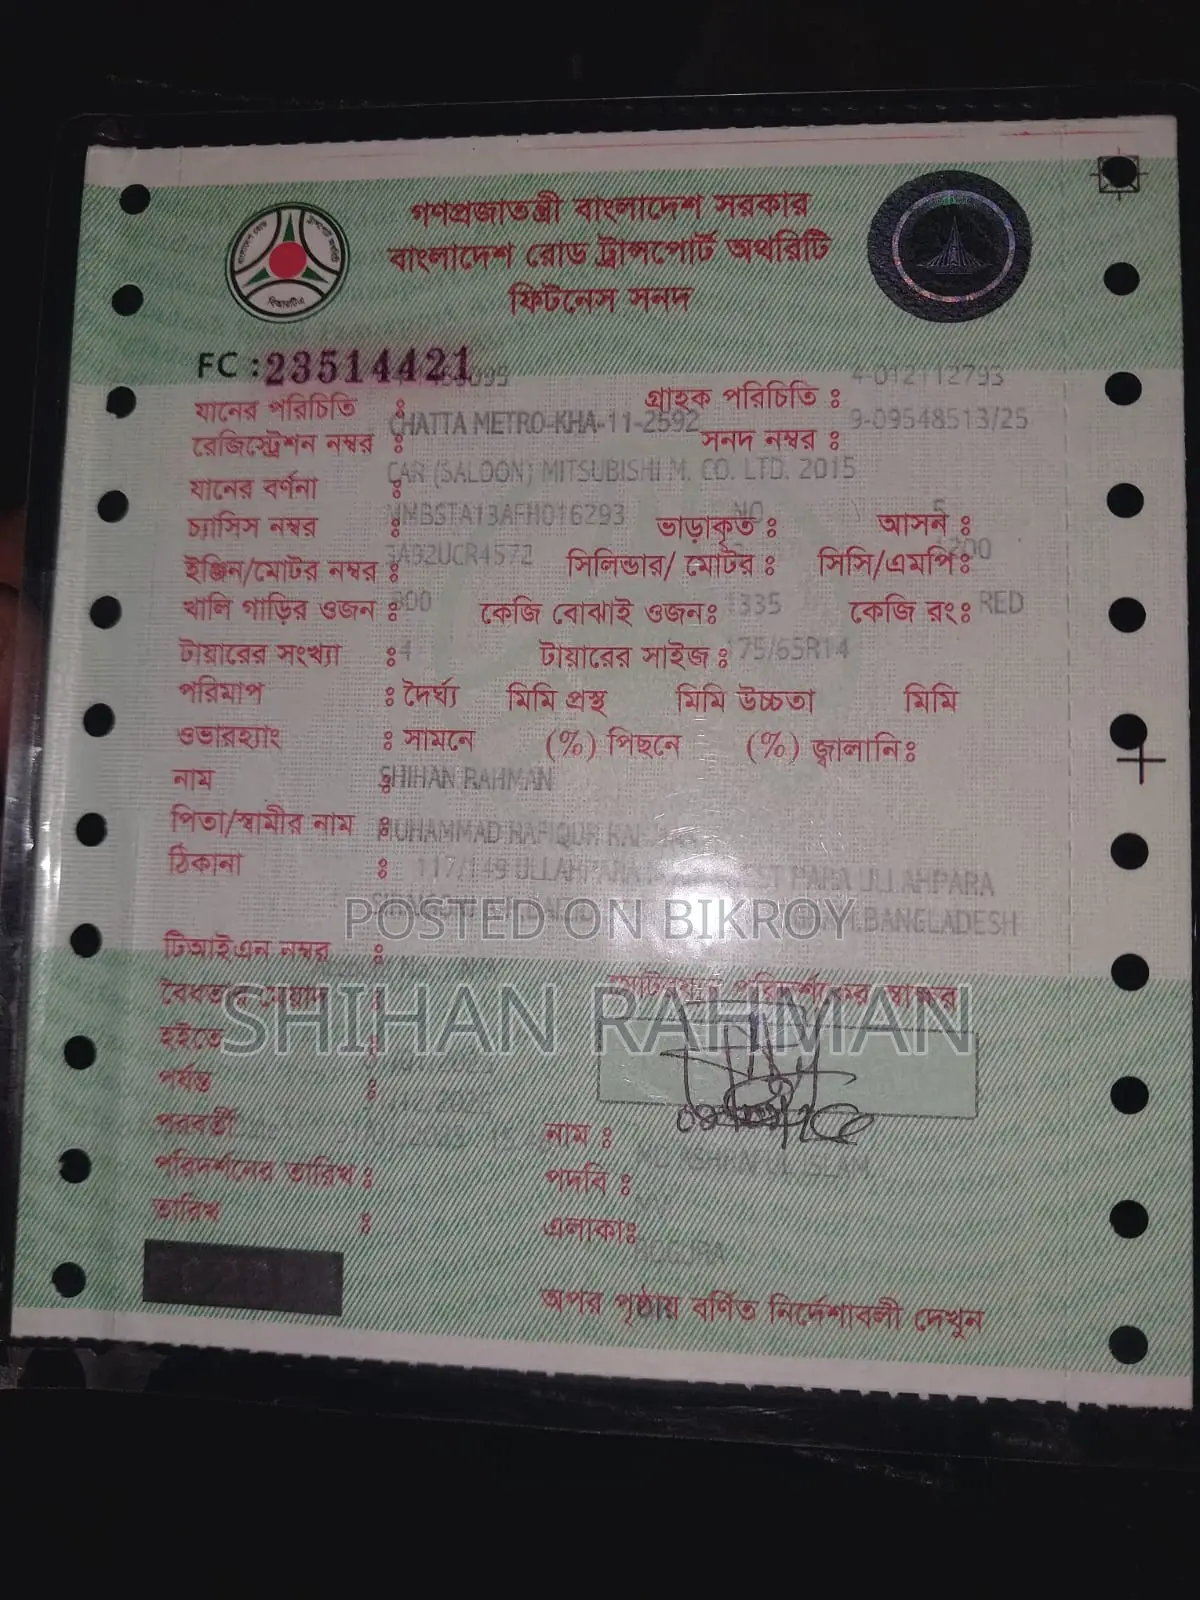 গণপ্রজাতন্ত্রী বাংলাদেশ সরকার
বাংলাদেশ রোড ট্রান্সপোর্ট অথরিটি
ফিটনেস সনদ
বিআরটিএ
FC : 23514421
যানের পরিচিতি : গ্রাহক পরিচিতি : 4-012112793
রেজিস্ট্রেশন নম্বর : CHATTA METRO-KHA-11-2592 সনদ নম্বর : 9-09548513/25
যানের বর্ণনা : CAR (SALOON) MITSUBISHI M. CO. LTD. 2015
চ্যাসিস নম্বর : MMBSTA13AFH016293 ভাড়াকৃত : NO আসন : 5
ইঞ্জিন/মোটর নম্বর : 3A92UCR4572 সিলিন্ডার/ মোটর : সিসি/এমপি:
খালি গাড়ির ওজন : কেজি বোঝাই ওজন: 1335 কেজি রং: RED
টায়ারের সংখ্যা : 4 টায়ারের সাইজ : 175/65R14
পরিমাপ : দৈর্ঘ্য মিমি প্রস্থ মিমি উচ্চতা মিমি
ওভারহ্যাং : সামনে (%) পিছনে (%) জ্বালানি:
নাম : SHIHAN RAHMAN
পিতা/স্বামীর নাম : MUHAMMAD RAFIQUR
ঠিকানা : 117/149 PARA ULLAHPARA
BANGLADESH
POSTED ON BIKROY
টিআইএন নম্বর :
SHIHAN RAHMAN
হইতে :
পর্যন্ত :
পরবর্তী
পরিদর্শনের তারিখ :
তারিখ :
নাম :
পদবি :
এলাকা: BOGURA
অপর পৃষ্ঠায় বর্ণিত নির্দেশাবলী দেখুন